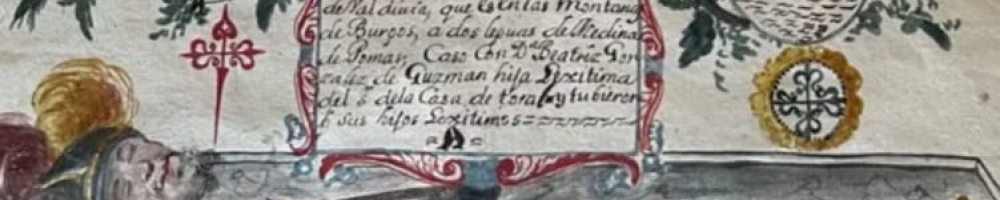 de Valdivia, que Es En las Montañas
de Burgos, a dos leguas de Medina
de Pomar, Caso Con Dª Beatriz Gon
zalez de Guzman hija Lexitima
del Sr dela Casa de toral y tubieron
sus hijos Lexitimos
A